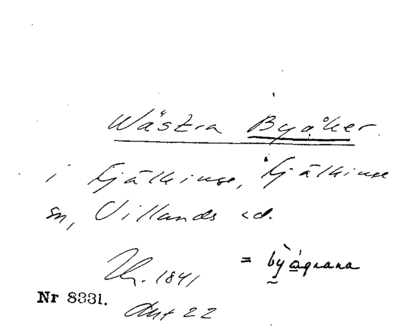 Wästra Byåker
i Fjälkinge, Fjälkinge
sn, Villands hd.
1841
= byågrana
Nr 8331.
Akt 22